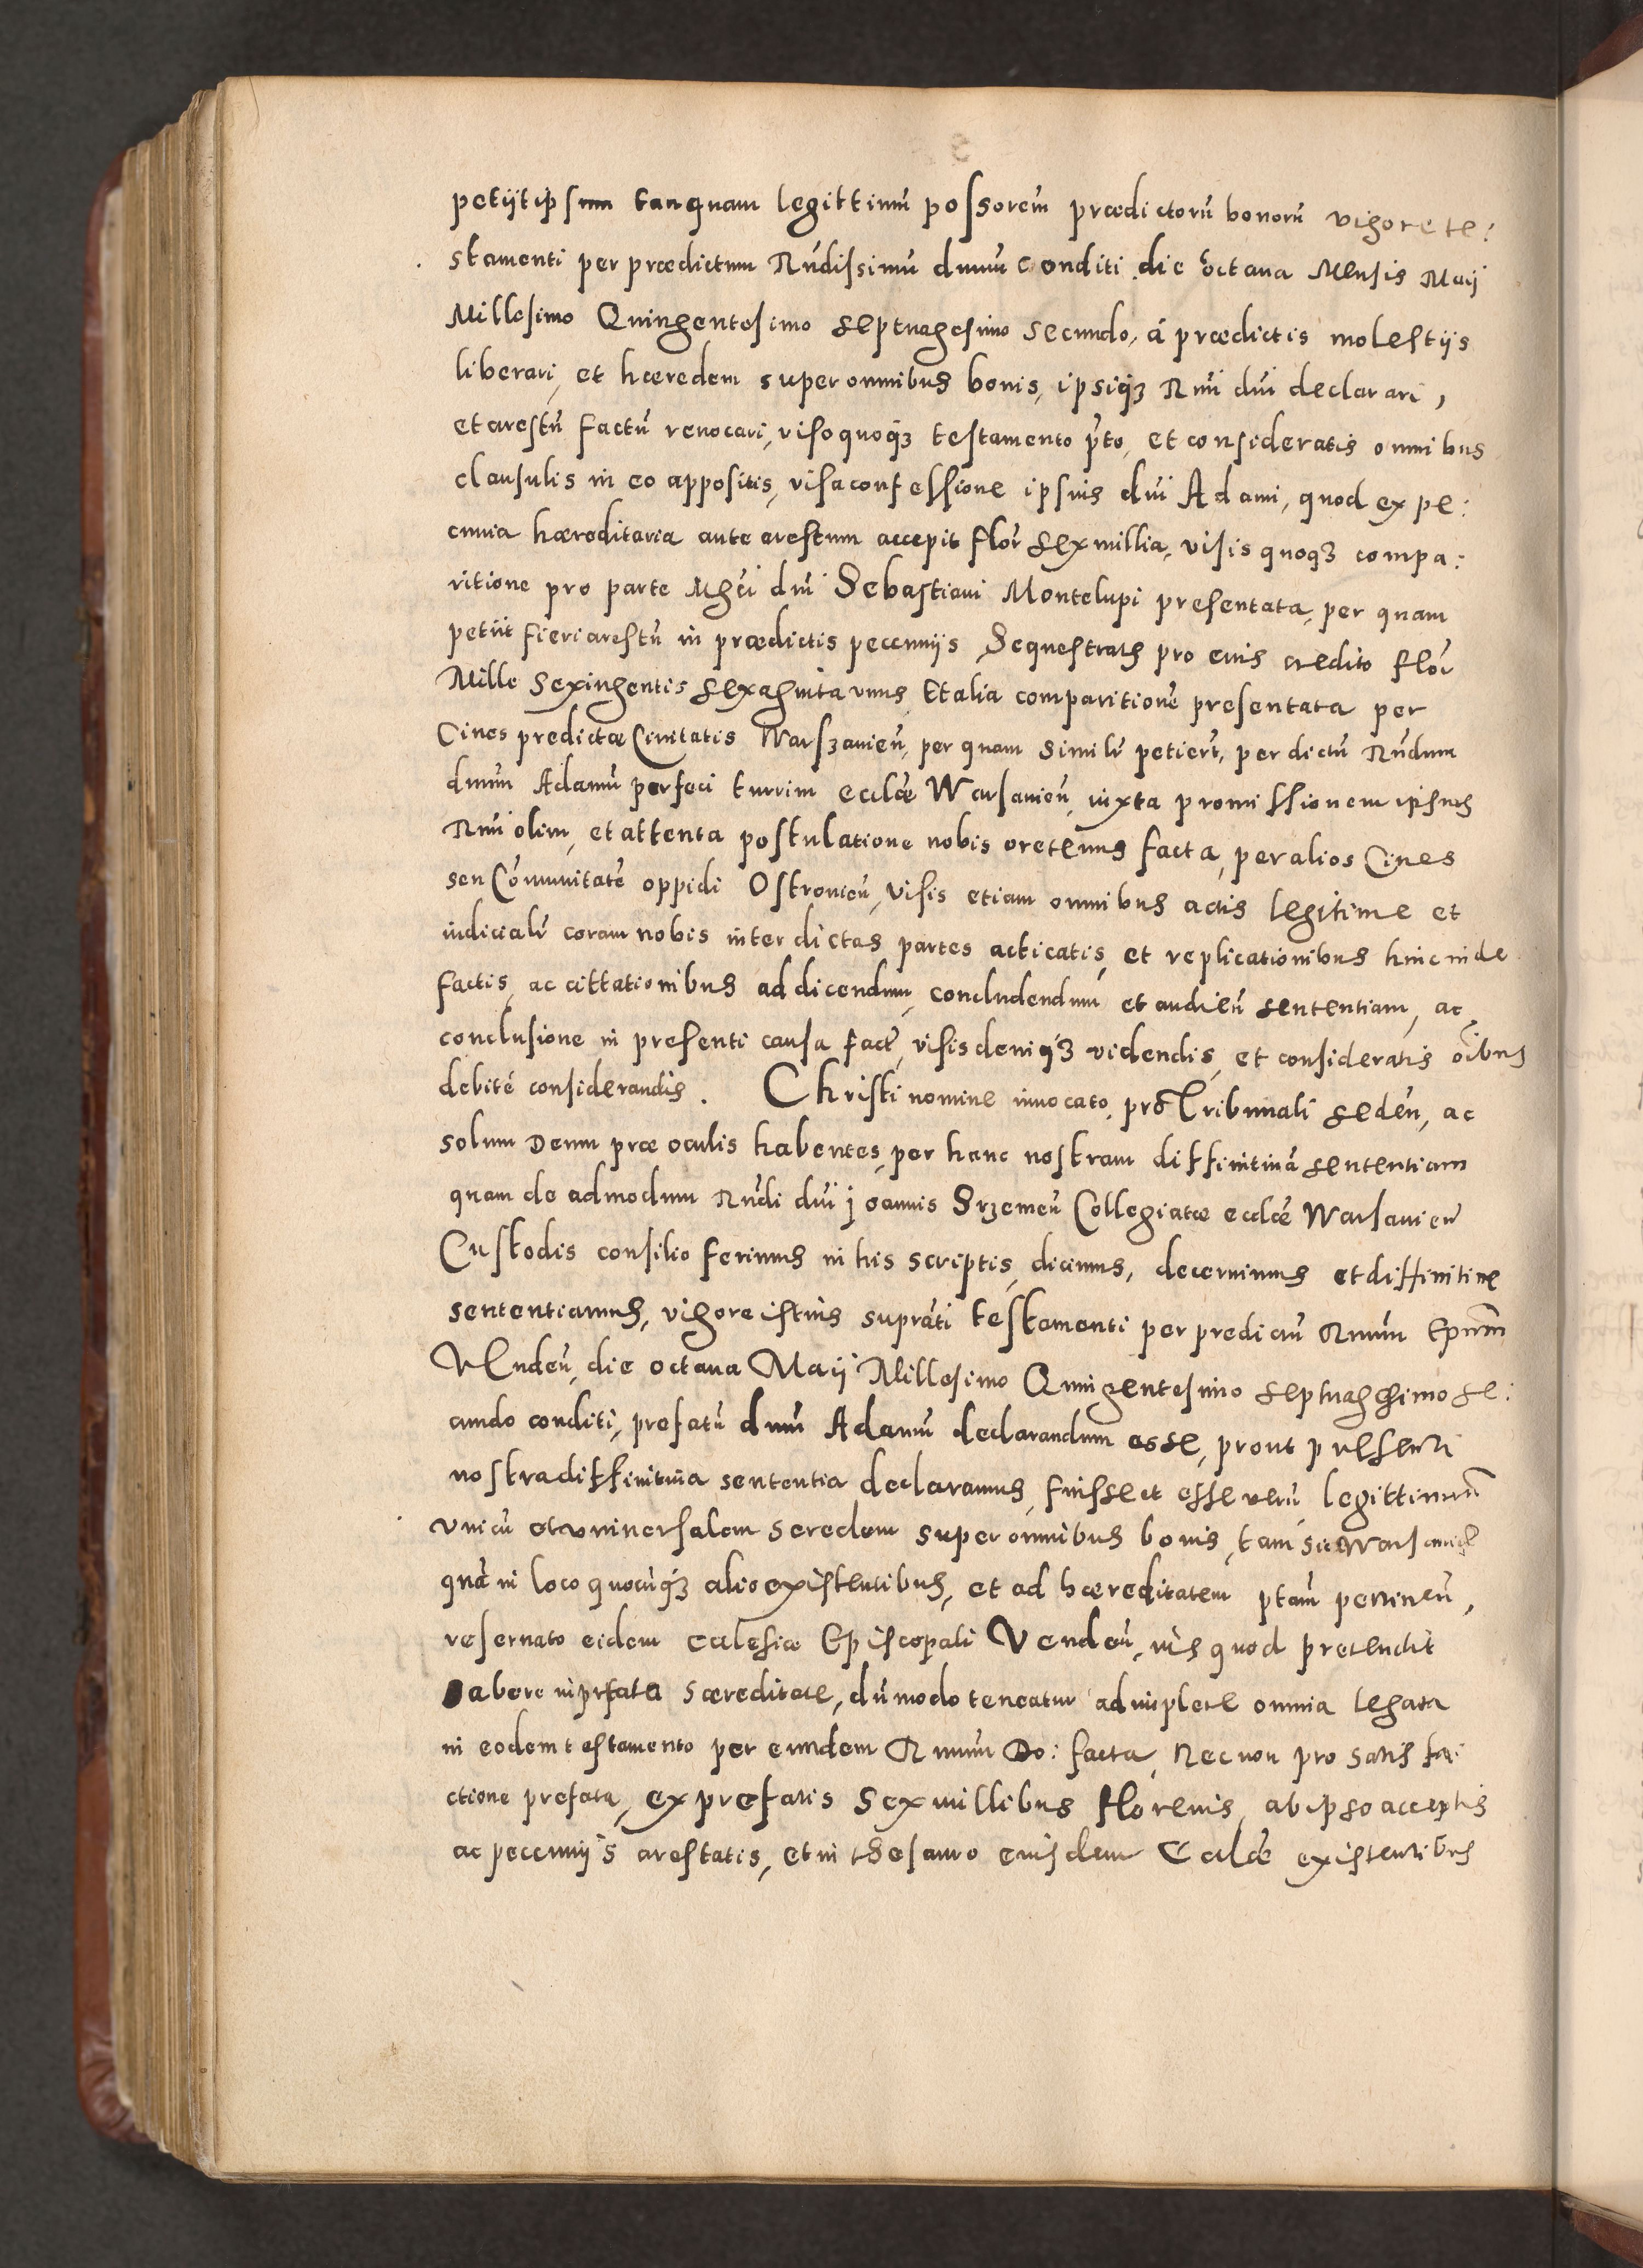 petijt ipsum tanquam legittimū possorem prædictorū bonorū vigore te:
stamenti per prædictum Rn̄dissimū dnum conditi die octava Mensis Maij
Millesimo Quingentesimo septuagesimo secundo, á prædictis molestijs
liberari, et hæredem super omnibus bonis, ipsiq3 Rmi dni declarari,
et arestū factū revocari, viso quoq3 testamento p̄to, et consideratis omnibus
clausulis in eo appositis, visa confessione ipsius dni Adami, quod ex pe:
cunia hæreditaria ante arestum accepit flor̄ sex millia, visis quoq3 compa:
ritione pro parte Mgci dni Sebastiani Montelupi presentata, per quam
petiit fieri arestū in prædictis pecunijs Sequestratis pro eius credito flor̄
Mille Sexingentis sexaginta unus, Et alia comparitionē presentata per
Cives predictæ Civitatis Warszavien̄, per quam similr̄ petierūt, per dictū Rn̄dum
dnum Adamū perfeci turrim ecclæ Warsavien̄, iuxta promissionem ipsius
Rmi olim, et attenta postulatione nobis oretenus facta, per alios Cives
seu Com̄unitatē oppidi Ostrovien̄, visis etiam omnibus actis legitime et
iudicialr̄ coram nobis inter dictas partes acticatis, et replicationibus hinc inde
factis, ac cittationibus ad dicendum, concludendum et audien̄ sententiam, ac
conclusione in presenti causa fact̄, visis deniq3 videndis, et consideratis oībus
debité considerandis. Christi nomine invocato, pro Tribunali seden̄, ac
solum Deum præ oculis habentes, per hanc nostram diffinitivā sententiam
quam de admodum Rn̄di dni Joannis Srzemen̄ Collegiatæ ecclæ Warsavien̄
Custodis consilio ferimus in his scriptis, dicimus, decernimus et diffinitive
sententiamus, vigore istius suprati testamenti per predictū Rmum Epum
Venden̄, die octava Maij Millesimo Quingentesimo septuagesimo se:
cundo conditi, prefatū dnū Adamū declarandum esse, prout presenti
nostra diffinitiva sententia declaramus, fuisse et esse verū legittimum
unicū et universalem seredem super omnibus bonis, tam sic Warsaviæ
quā in loco quocūq3 alio existentibus, et ad hæreditatem ptam pertinen̄,
reservato eidem ecclesiæ Episcopali Venden̄, ius quod pretendit
sabere in prefata særeditate, dūmodo teneatur adimplere omnia legata
in eodem testamento per eundem Rmum Do: facta, Nec non pro satisfa:
ctione prefata, ex prefatis Sex millibus florenis, ab ipso acceptis
ac pecunijs arestatis, et in thesauro eiusdem Ecclæ existentibus